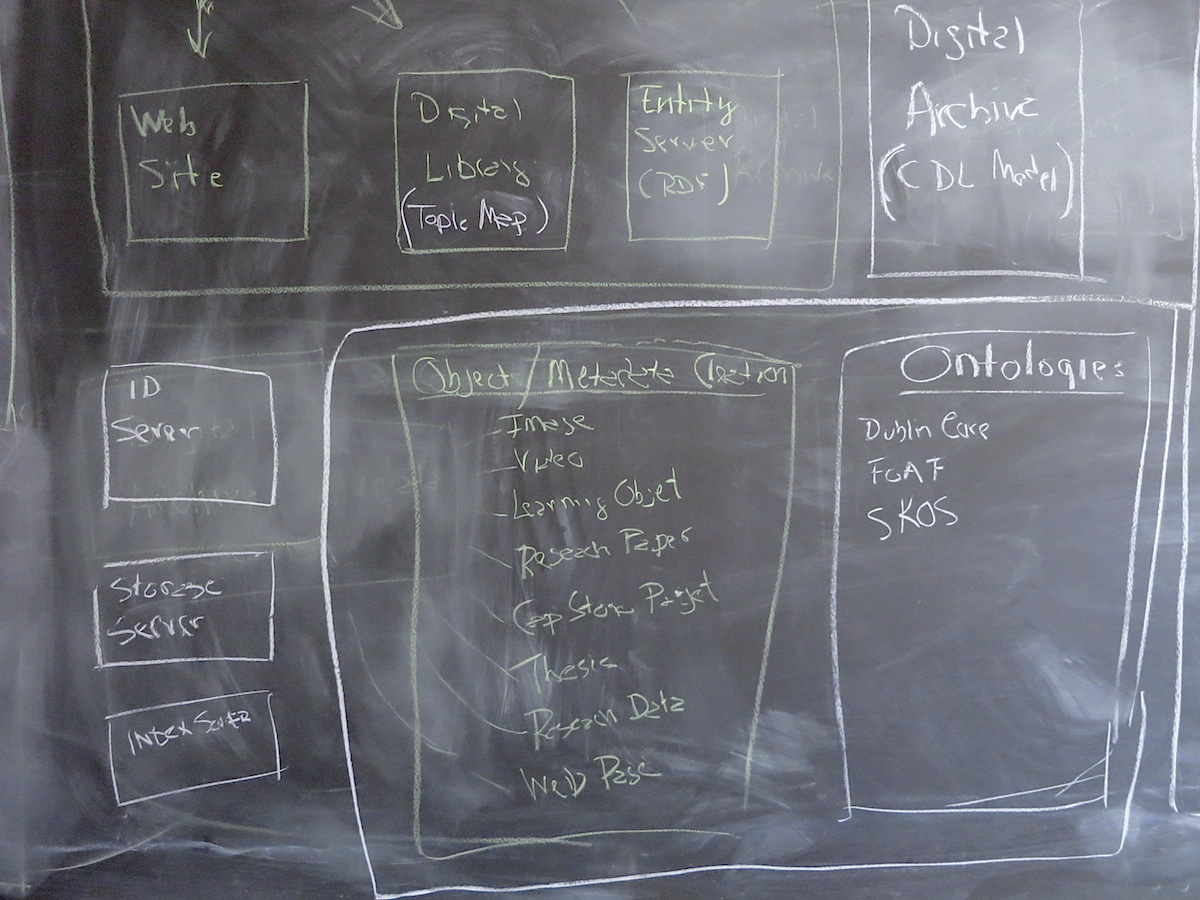 Web
Site
Digital
Library
(Topic Map)
Entity
Server
(RDF)
Digital
Archive
(CDL Model)
ID
Server
Storage
Server
Index Server
Object / Metadata Creation
- Image
- Video
- Learning Objet
- Reseach Paper
- Cap Stone Project
- Thesis
- Reseach Data
- Web Page
Ontologies
Dublin Core
FOAF
SKOS